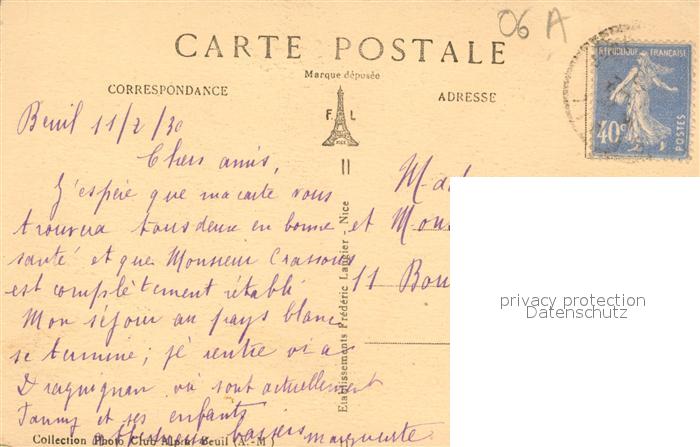 06 A
CARTE POSTALE
Marque déposée
CORRESPONDANCE
ADRESSE
F. L.
NICE
REPUBLIQUE FRANÇAISE
40c
POSTES
Beuil 11/2/30
Chers amis,
J'espère que ma carte vous
trouvera tous deux en bonne
santé et que Monsieur Crassous
est complètement rétabli
Mon séjour au pays blanc
se termine; je rentre via
Draguignan où sont actuellement
Fanny et ses enfants
baisers Marguerite
Etablissements Frédéric Laugier - Nice
et
11
privacy protection
Datenschutz
Collection Photo Club Alpin Beuil (A.-M.)